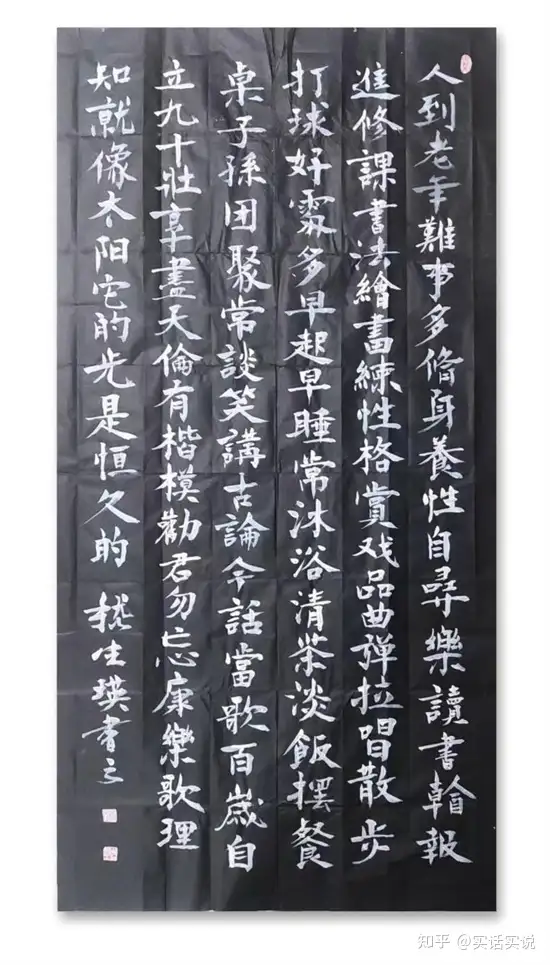 人到老年難事多修身養性自尋樂讀書翰報
進修課書法繪畫練性格賞戏品曲弹拉唱散步
打球好處多早起早睡常沐浴清茶淡飯摆餐
桌子孫团聚常談笑講古論今話當歌百歲自
立九十壯享盡天倫有楷模勸君勿忘康樂歌理
知就像太阳它的光是恒久的 生瑛書之
知乎 @实话实说